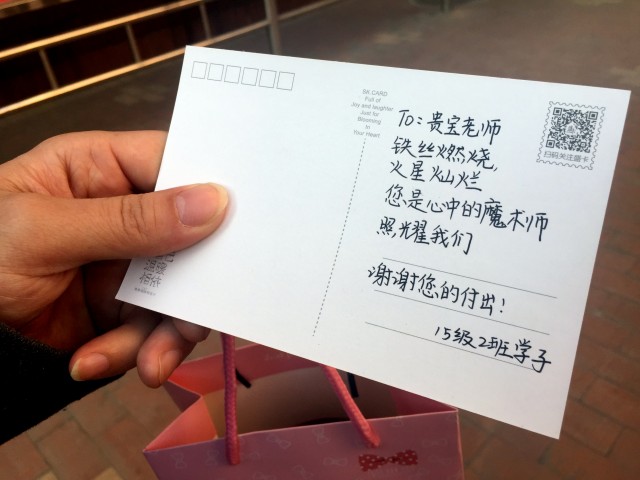 SK.CARD
Full of
Joy and laughter
Just for
Blooming
in
Your Heart
扫码关注晒卡
To：贵宝老师
铁丝燃烧，
火星灿烂
您是心中的魔术师
照耀我们
谢谢您的付出！
15级2班学子